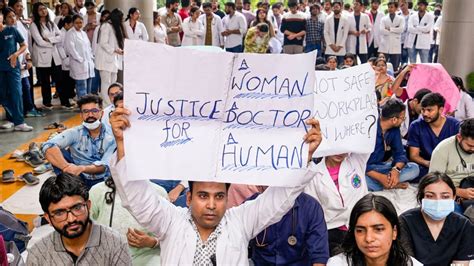 JUSTICE
for
A
WOMAN
A
DOCTOR
A
HUMAN
NOT SAFE
WORKPLA
N WHERE?